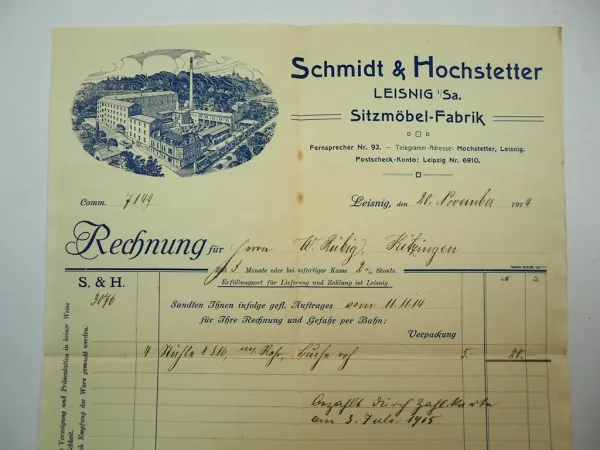 Schmidt & Hochstetter
LEISNIG i/Sa.
Sitzmöbel-Fabrik
Fernsprecher Nr. 92. — Telegramm-Adresse: Hochstetter, Leisnig.
Postscheck-Konto: Leipzig Nr. 6910.
Comm. 7149
Leisnig, den 20. November 1914
Rechnung für Herrn W. Rübig, Kitzingen
Ziel 3 Monate oder bei sofortiger Kasse 2 % Skonto.
Erfüllungsort für Lieferung und Zahlung ist Leisnig.
S. & H.
3076
Sandten Ihnen infolge gefl. Auftrages vom 11.11.14
für Ihre Rechnung und Gefahr per Bahn:
Verpackung
4 Stühle 316, Rohr, Buche roh 5.- 20.
Bezahlt durch Zahlkarte
am 3. Juli 1915
Verzögung und Präsentation in keiner Weise
Empfang der Ware gemacht werden.